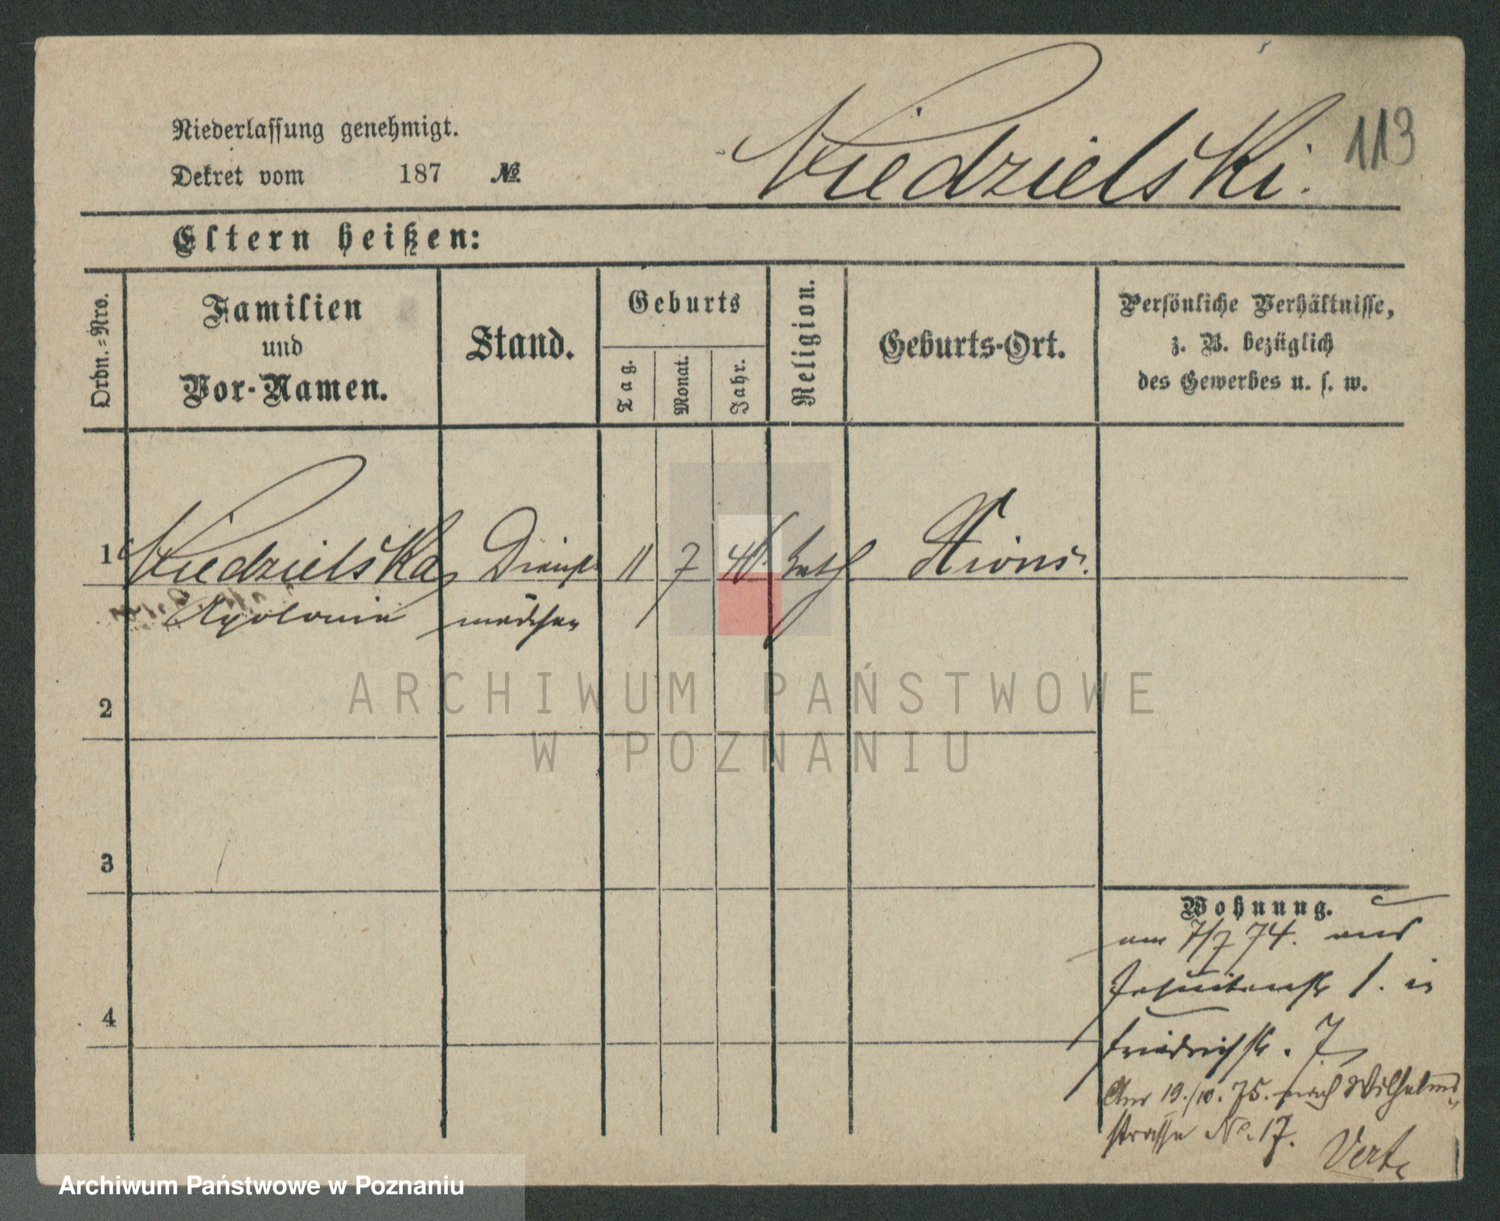 Niederlassung genehmigt.
Dekret vom 187 №
Niedzielski.
113
Eltern heißen:
Ordn.-Nro.
Familien
und
Vor-Namen.
Stand.
Geburts
Tag.
Monat.
Jahr.
Religion.
Geburts-Ort.
Persönliche Verhältnisse,
z. B. bezüglich
des Gewerbes u. s. w.
1
Niedzielska, Dienst 11 7 Kath Xions.
Apolonia mädchen
2
ARCHIWUM PAŃSTWOWE
W POZNANIU
3
4
Wohnung.
am 7/7 74. aus
Jesuitenstr 1. in
Friedrichstr. 7
Am 19./10. 75. nach Wilhelms
strasse No. 17.
Verte
Archiwum Państwowe w Poznaniu